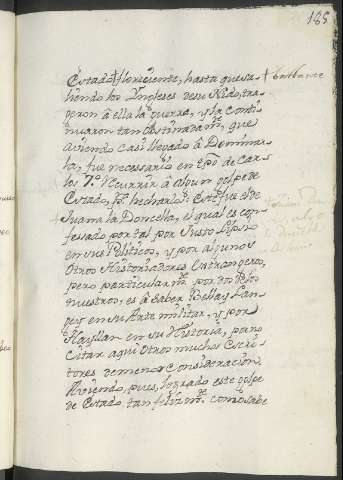 185
Estado floreciente, hasta que sa-
liendo los Yngleses de su Nido, tra-
geron â ella la guerra, y la conti-
nuaron tan obstinadam.te, que
aviendo casi llegado â Dominar-
la, fue necessario en tpō de Car-
los 7.º recurrir â algun golpe de
Estado, p.a hecharlos. Este fue el de
Juana la Doncela, el qual es con-
fessado por tal por Justo Lipsio
en sus Politicos, y por algunos
otros Historiadores Extrangeros,
pero particularm.te por dos de los
nuestros, es â saber Bellay Lan-
gey en su Arte militar, y por
Hayllan en su Historia, por no
citar aqui otros muchos Escri-
tores de menor consideracion.
Aviendo, pues, logrado este golpe
de Estado tan felizm.te como sabe